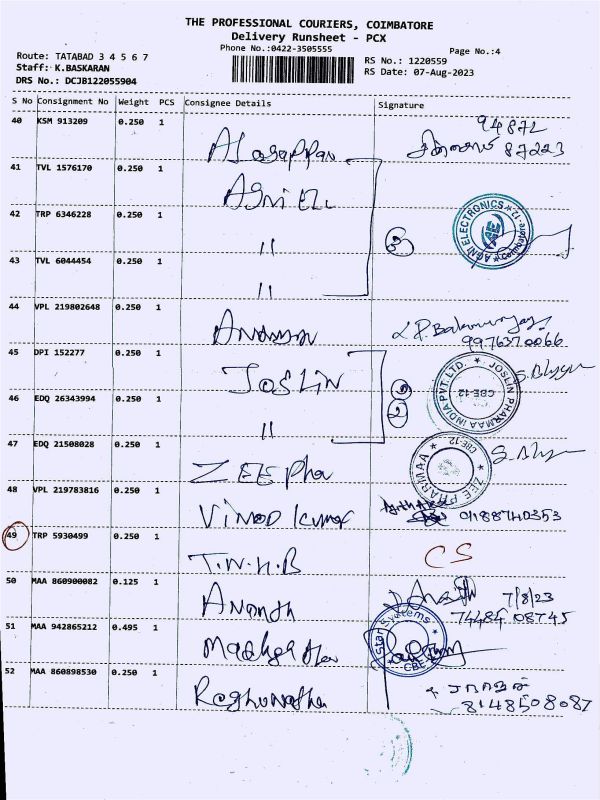 THE PROFESSIONAL COURIERS, COIMBATORE
Delivery Runsheet - PCX
Phone No.:0422-3505555
Page No.:4
Route: TATABAD 3 4 5 6 7
Staff: K.BASKARAN
DRS No.: DCJB122055904
RS No.: 1220559
RS Date: 07-Aug-2023
S No Consignment No Weight PCS Consignee Details Signature
40 KSM 913209 0.250 1
Alagappan 94872
87223
41 TVL 1576170 0.250 1
Agni Ele
42 TRP 6346228 0.250 1
" 3 AGNI ELECTRONICS ★ Coimbatore-12 ★ AE
43 TVL 6044454 0.250 1
"
44 VPL 219802648 0.250 1
9976370066
45 DPI 152277 0.250 1
JOSLIN JOSLIN PHARMAA INDIA PVT. LTD. ★ CBE-12
46 EDQ 26343994 0.250 1
" 2
47 EDQ 21508028 0.250 1
ZEE Pha ZEE PHARMAA ★ CBE-12
48 VPL 219783816 0.250 1
Vinod Kumar
49 TRP 5930499 0.250 1
T.N.H.B CS
50 MAA 860900082 0.125 1
Ananth 7/8/23
74484 08745
51 MAA 942865212 0.495 1
star Systems CBE
52 MAA 860898530 0.250 1
Raghunatha
8148508087